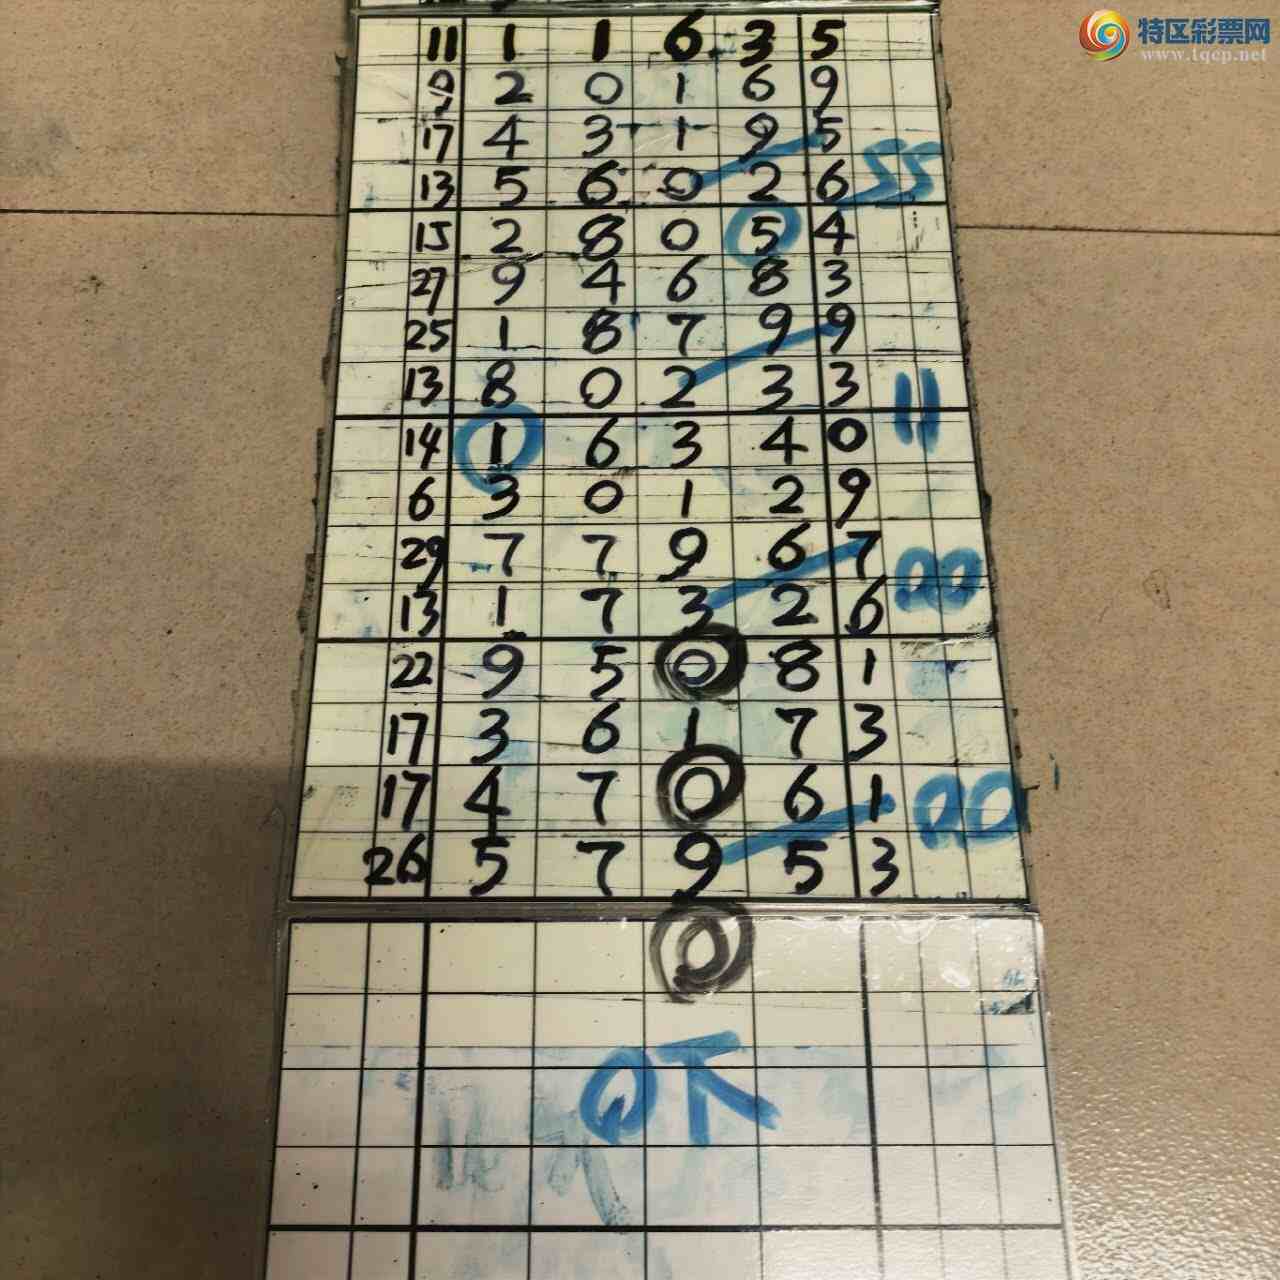 特区彩票网
www.tqcp.net
11 1 1 6. 3 5
9 2 0 1 6 9
17 4 3 1 9 5
13 5 6 0 2 6 55
15 2 8 0 5 4
27 9 4 6 8 3
25 1 8 7 9 9
13 8 0 2 3 3 11
14 1 6 3 4 0
6 3 0 1 2 9
29 7 7 9 6 7 00
13 1 7 3 2 6
22 9 5 0 8 1
17 3 6 1 7 3
17 4 7 0 6 1 00
26 5 7 9 5 3
0
0下